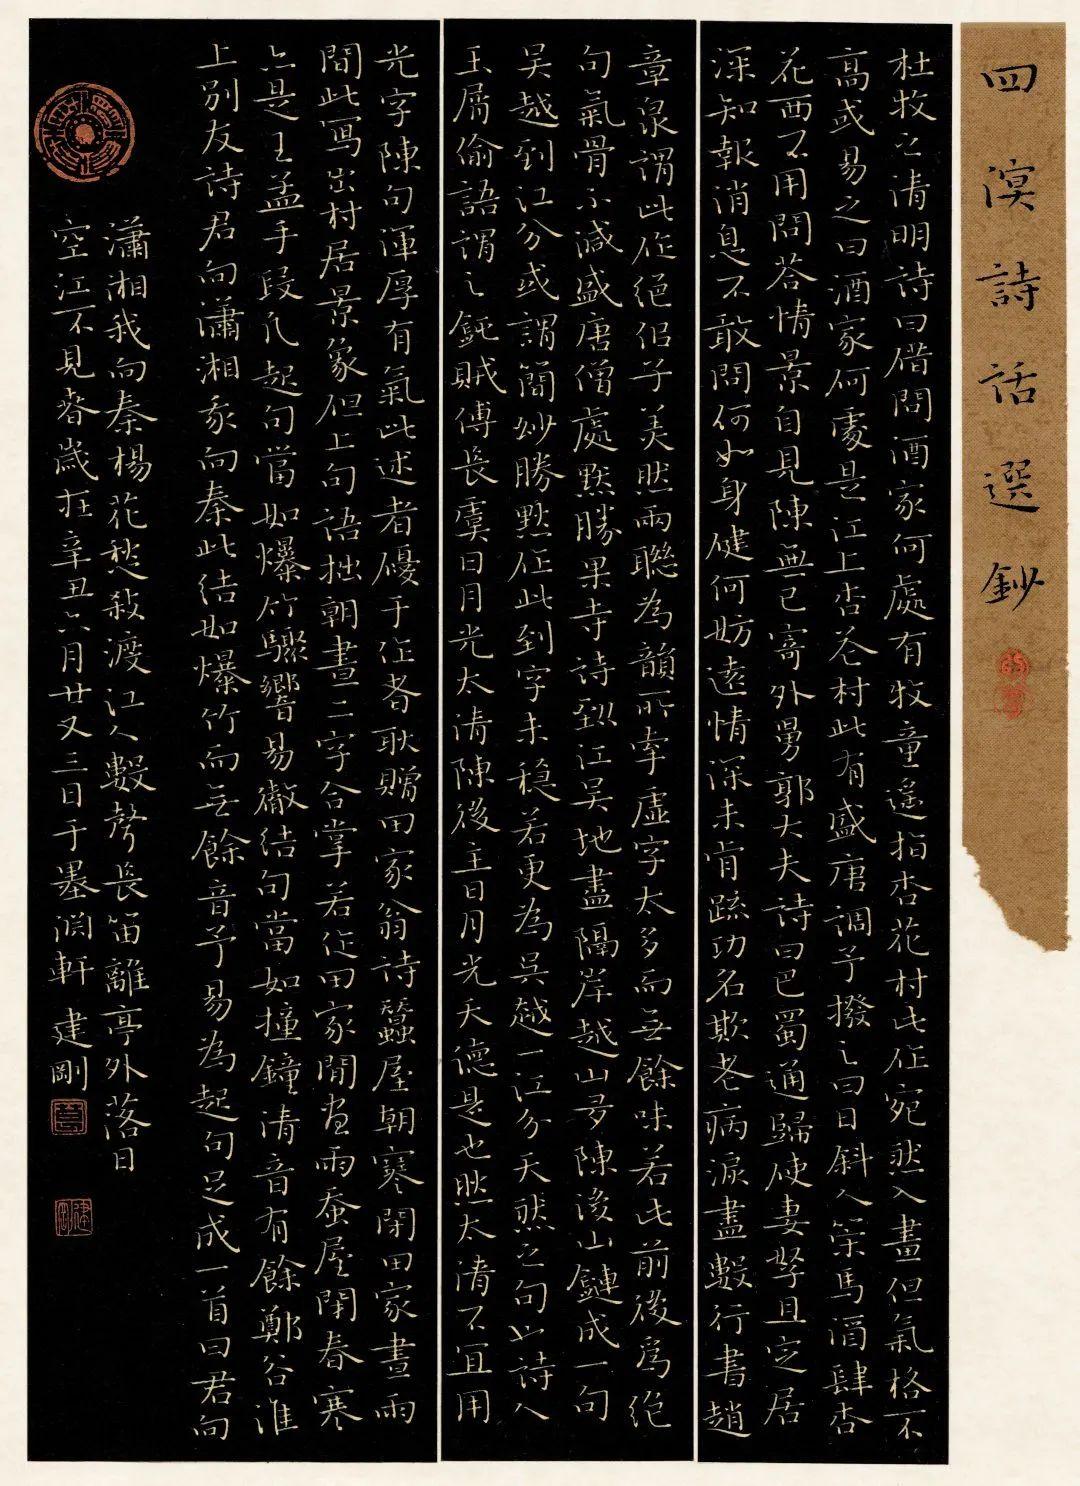 四溟詩話選鈔
杜牧之清明詩曰借問酒家何處有牧童遙指杏花村此作宛然入畫但氣格不
高或易之曰酒家何處是江上杏花村此有盛唐調予擬之曰日斜人策馬酒肆杏
花西不用問荅情景自見陳無己寄外舅郭大夫詩曰巴蜀通歸使妻孥且定居
深知報消息不敢問何如身健何妨遠情深未肯疏功名欺老病淚盡數行書趙
章泉謂此作絕似子美然兩聯為韻所牽虛字太多而無餘味若此前後為絕
句氣骨不減盛唐僧處默勝果寺詩到江吳地盡隔岸越山多陳後山鏈成一句
吴越到江分或謂簡妙勝默作此到字未穩若更為吳越一江分天然之句也詩人
玉屑偷語謂之鈍賊傅長虞日月光太清陳後主日月光天德是也然太清不宜用
光字陳句渾厚有氣此述者優于作者耿贈田家翁詩蠶屋朝寒閉田家晝雨
間此寫出村居景象但上句語拙朝晝二字合掌若作田家閒晝雨蚕屋閉春寒
亦是王孟手段凡起句當如爆竹驟響易徹結句當如撞鐘清音有餘鄭谷淮
上別友詩君向瀟湘我向秦此結如爆竹而無餘音予易為起句足成一首曰君向
瀟湘我向秦楊花愁殺渡江人數聲長笛離亭外落日
空江不見春歲在辛丑六月廿又三日于墨淵軒 建剛